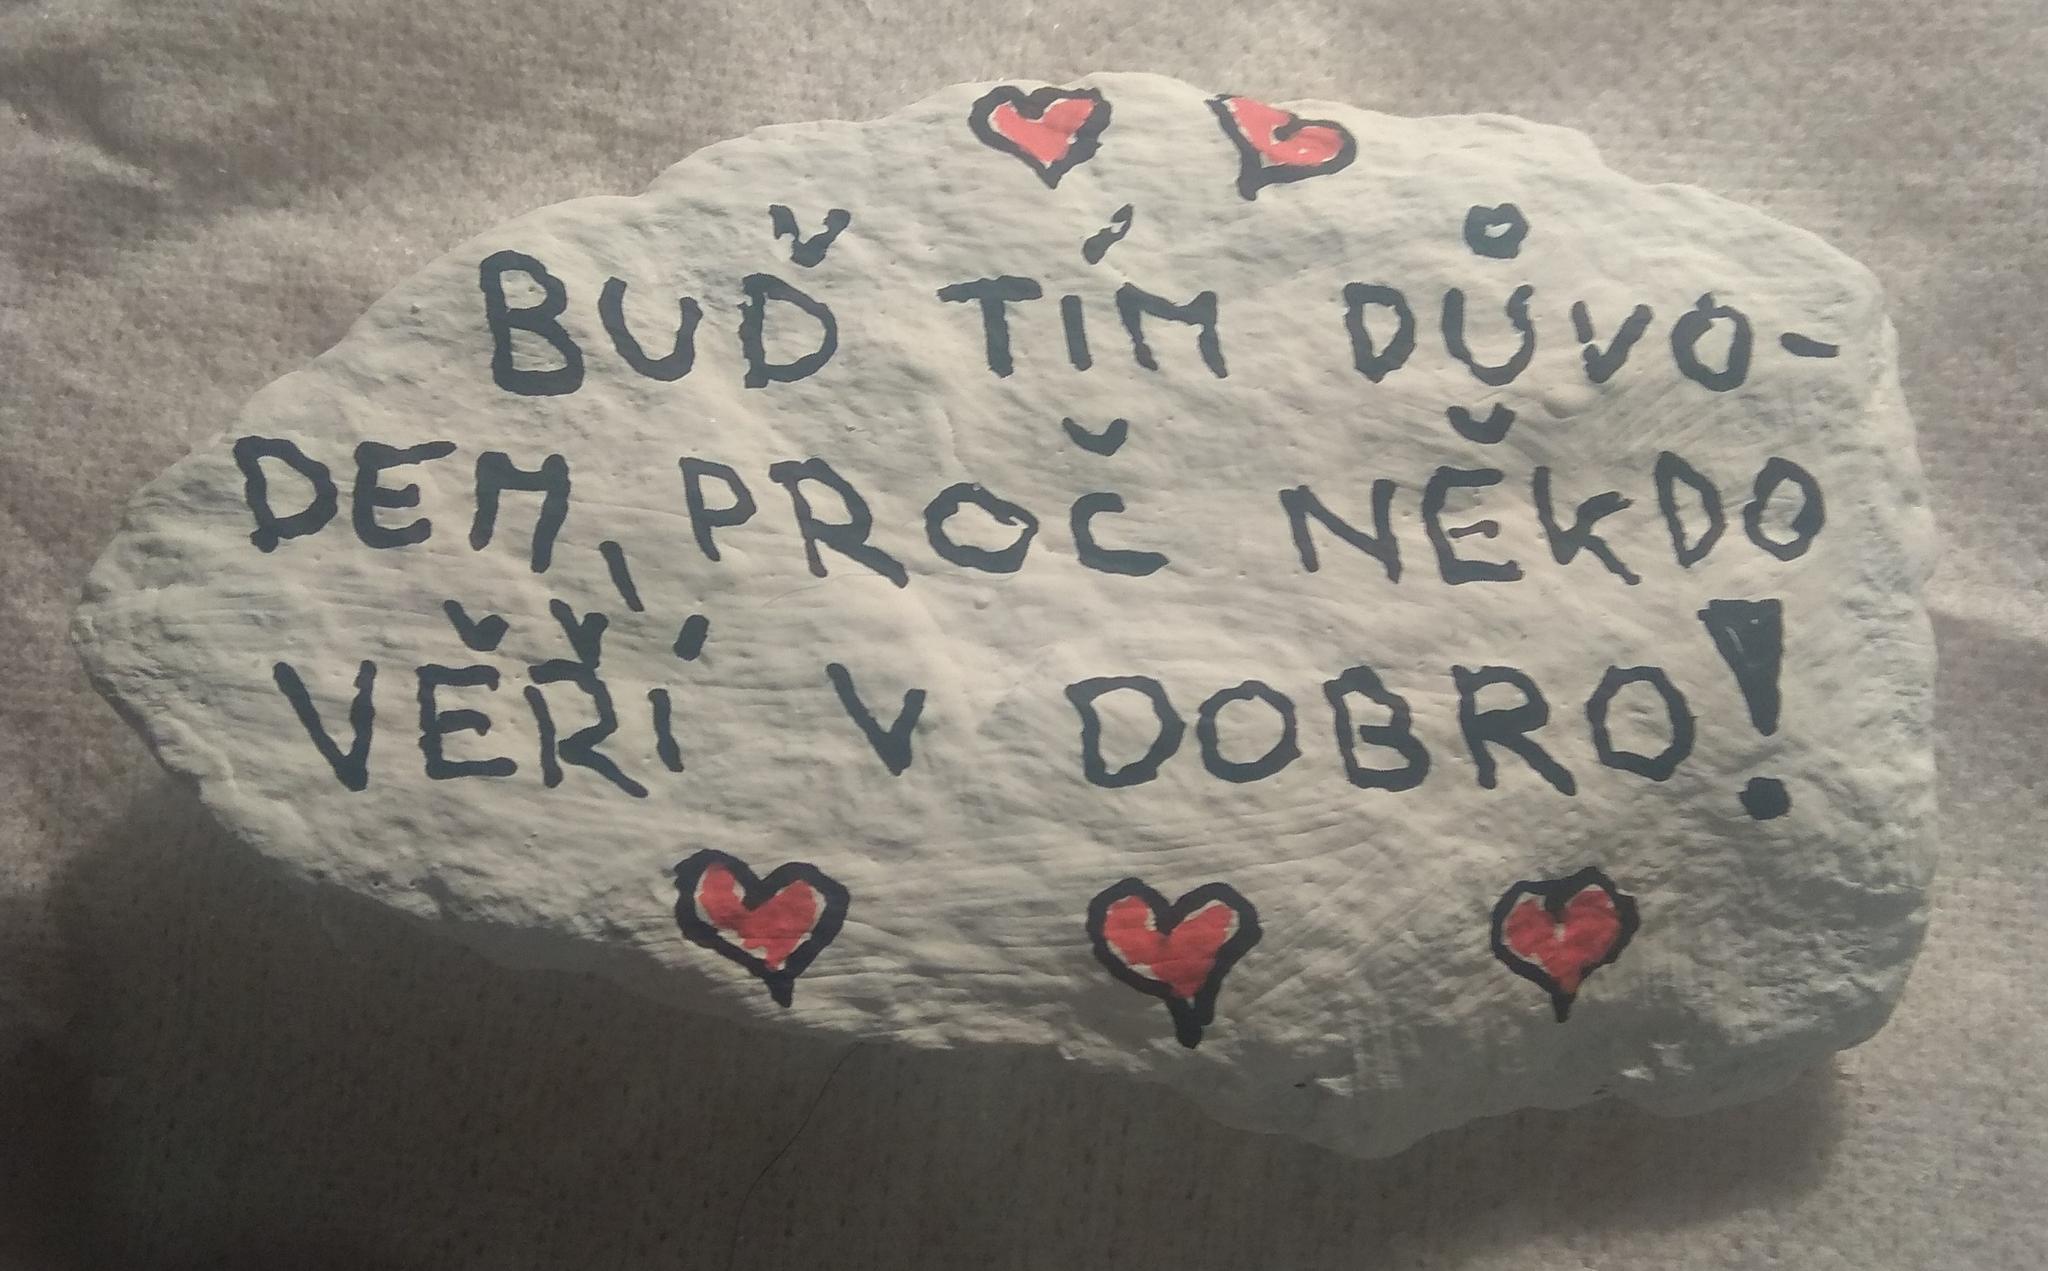 BUĎ TÍM DŮVO-
DEM, PROČ NĚKDO
VĚŘÍ V DOBRO!